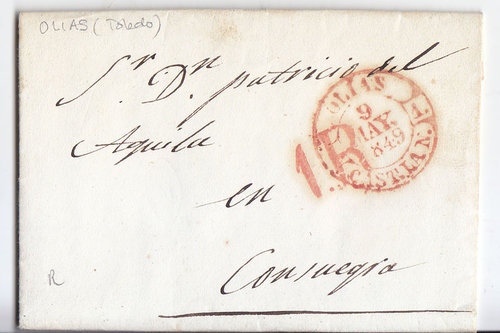 OLIAS (Toledo)
Sr. Dn. patricio del
Aguila
en
Consuegra
OLIAS
9
MAY.
849
CAST. LA N.
1R
R